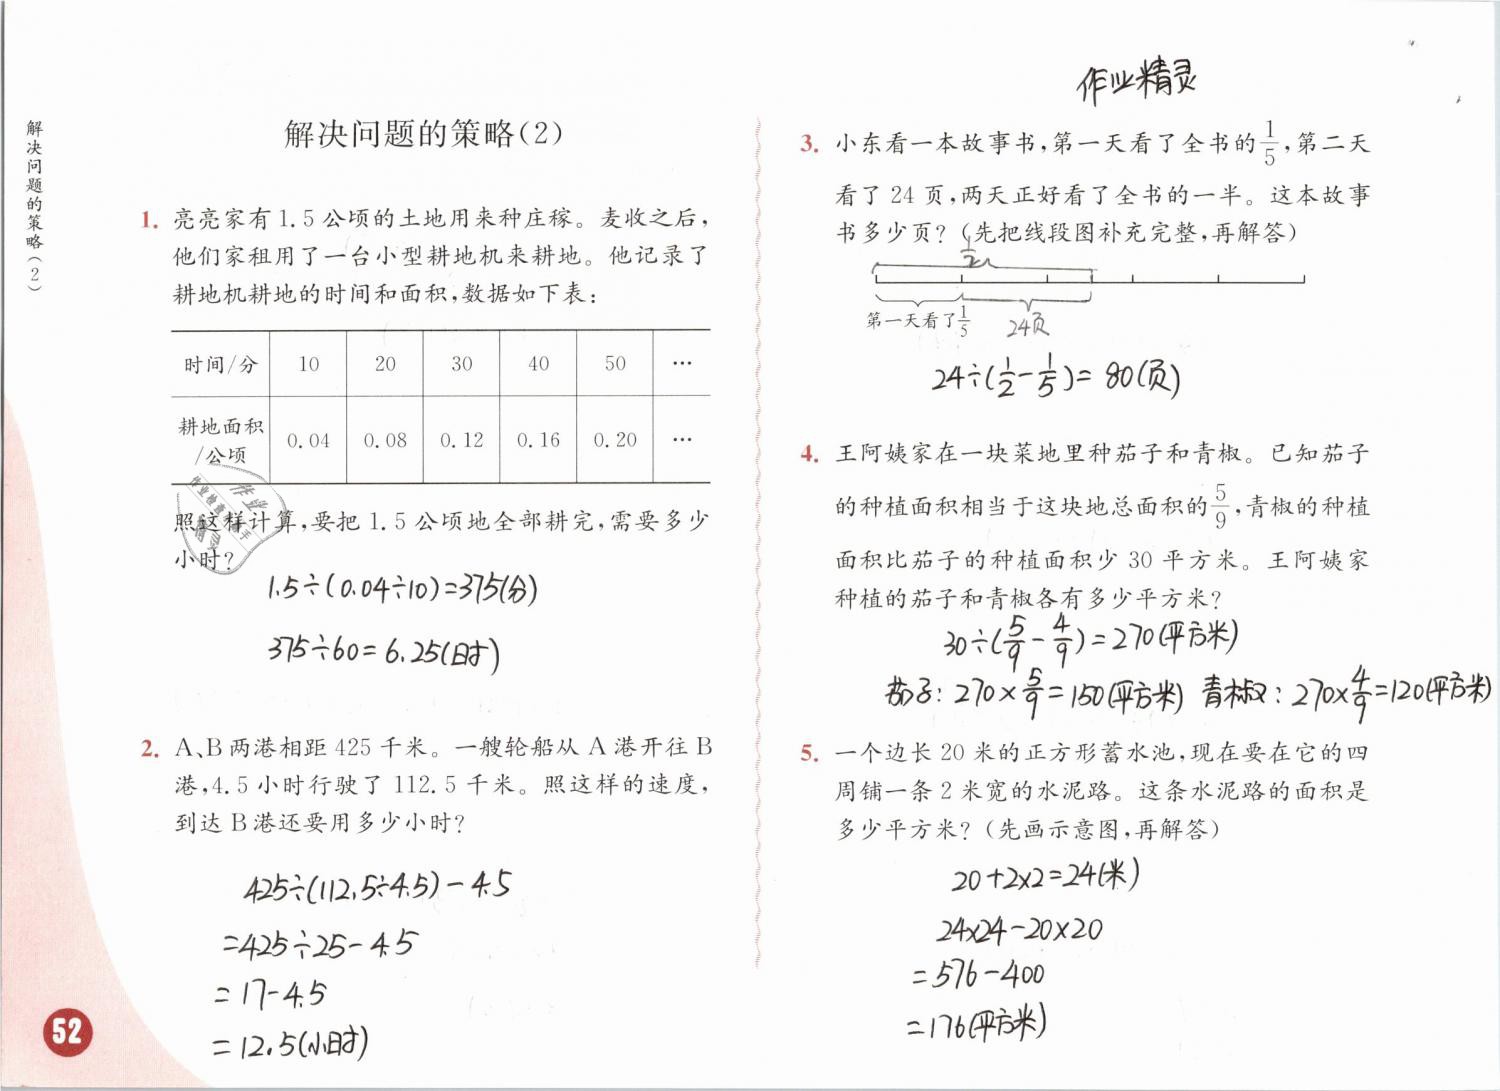 解决问题的策略(2)
解决问题的策略(2)
1. 亮亮家有1.5公顷的土地用来种庄稼。麦收之后,
他们家租用了一台小型耕地机来耕地。他记录了
耕地机耕地的时间和面积,数据如下表:
时间/分 10 20 30 40 50 …
耕地面积/公顷 0.04 0.08 0.12 0.16 0.20 …
照这样计算,要把1.5公顷地全部耕完,需要多少
小时?
1.5÷(0.04÷10)=375(分)
375÷60=6.25(时)
2. A、B两港相距425千米。一艘轮船从A港开往B
港,4.5小时行驶了112.5千米。照这样的速度,
到达B港还要用多少小时?
425÷(112.5÷4.5)-4.5
=425÷25-4.5
=17-4.5
=12.5(小时)
52
作业精灵
3. 小东看一本故事书,第一天看了全书的1/5,第二天
看了24页,两天正好看了全书的一半。这本故事
书多少页?(先把线段图补充完整,再解答)
1/2
第一天看了1/5 24页
24÷(1/2-1/5)=80(页)
4. 王阿姨家在一块菜地里种茄子和青椒。已知茄子
的种植面积相当于这块地总面积的5/9,青椒的种植
面积比茄子的种植面积少30平方米。王阿姨家
种植的茄子和青椒各有多少平方米?
30÷(5/9-4/9)=270(平方米)
茄子:270×5/9=150(平方米) 青椒:270×4/9=120(平方米)
5. 一个边长20米的正方形蓄水池,现在要在它的四
周铺一条2米宽的水泥路。这条水泥路的面积是
多少平方米?(先画示意图,再解答)
20+2×2=24(米)
24×24-20×20
=576-400
=176(平方米)